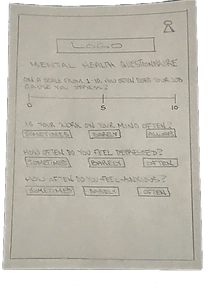 LOGO
MENTAL HEALTH QUESTIONNAIRE
ON A SCALE FROM 1-10, HOW OFTEN DOES YOUR JOB
CAUSE YOU STRESS?
0 5 10
IS YOUR WORK ON YOUR MIND OFTEN?
SOMETIMES RARELY ALWAYS
HOW OFTEN DO YOU FEEL DEPRESSED?
SOMETIMES RARELY OFTEN
HOW OFTEN DO YOU FEEL ANXIOUS?
SOMETIMES RARELY OFTEN